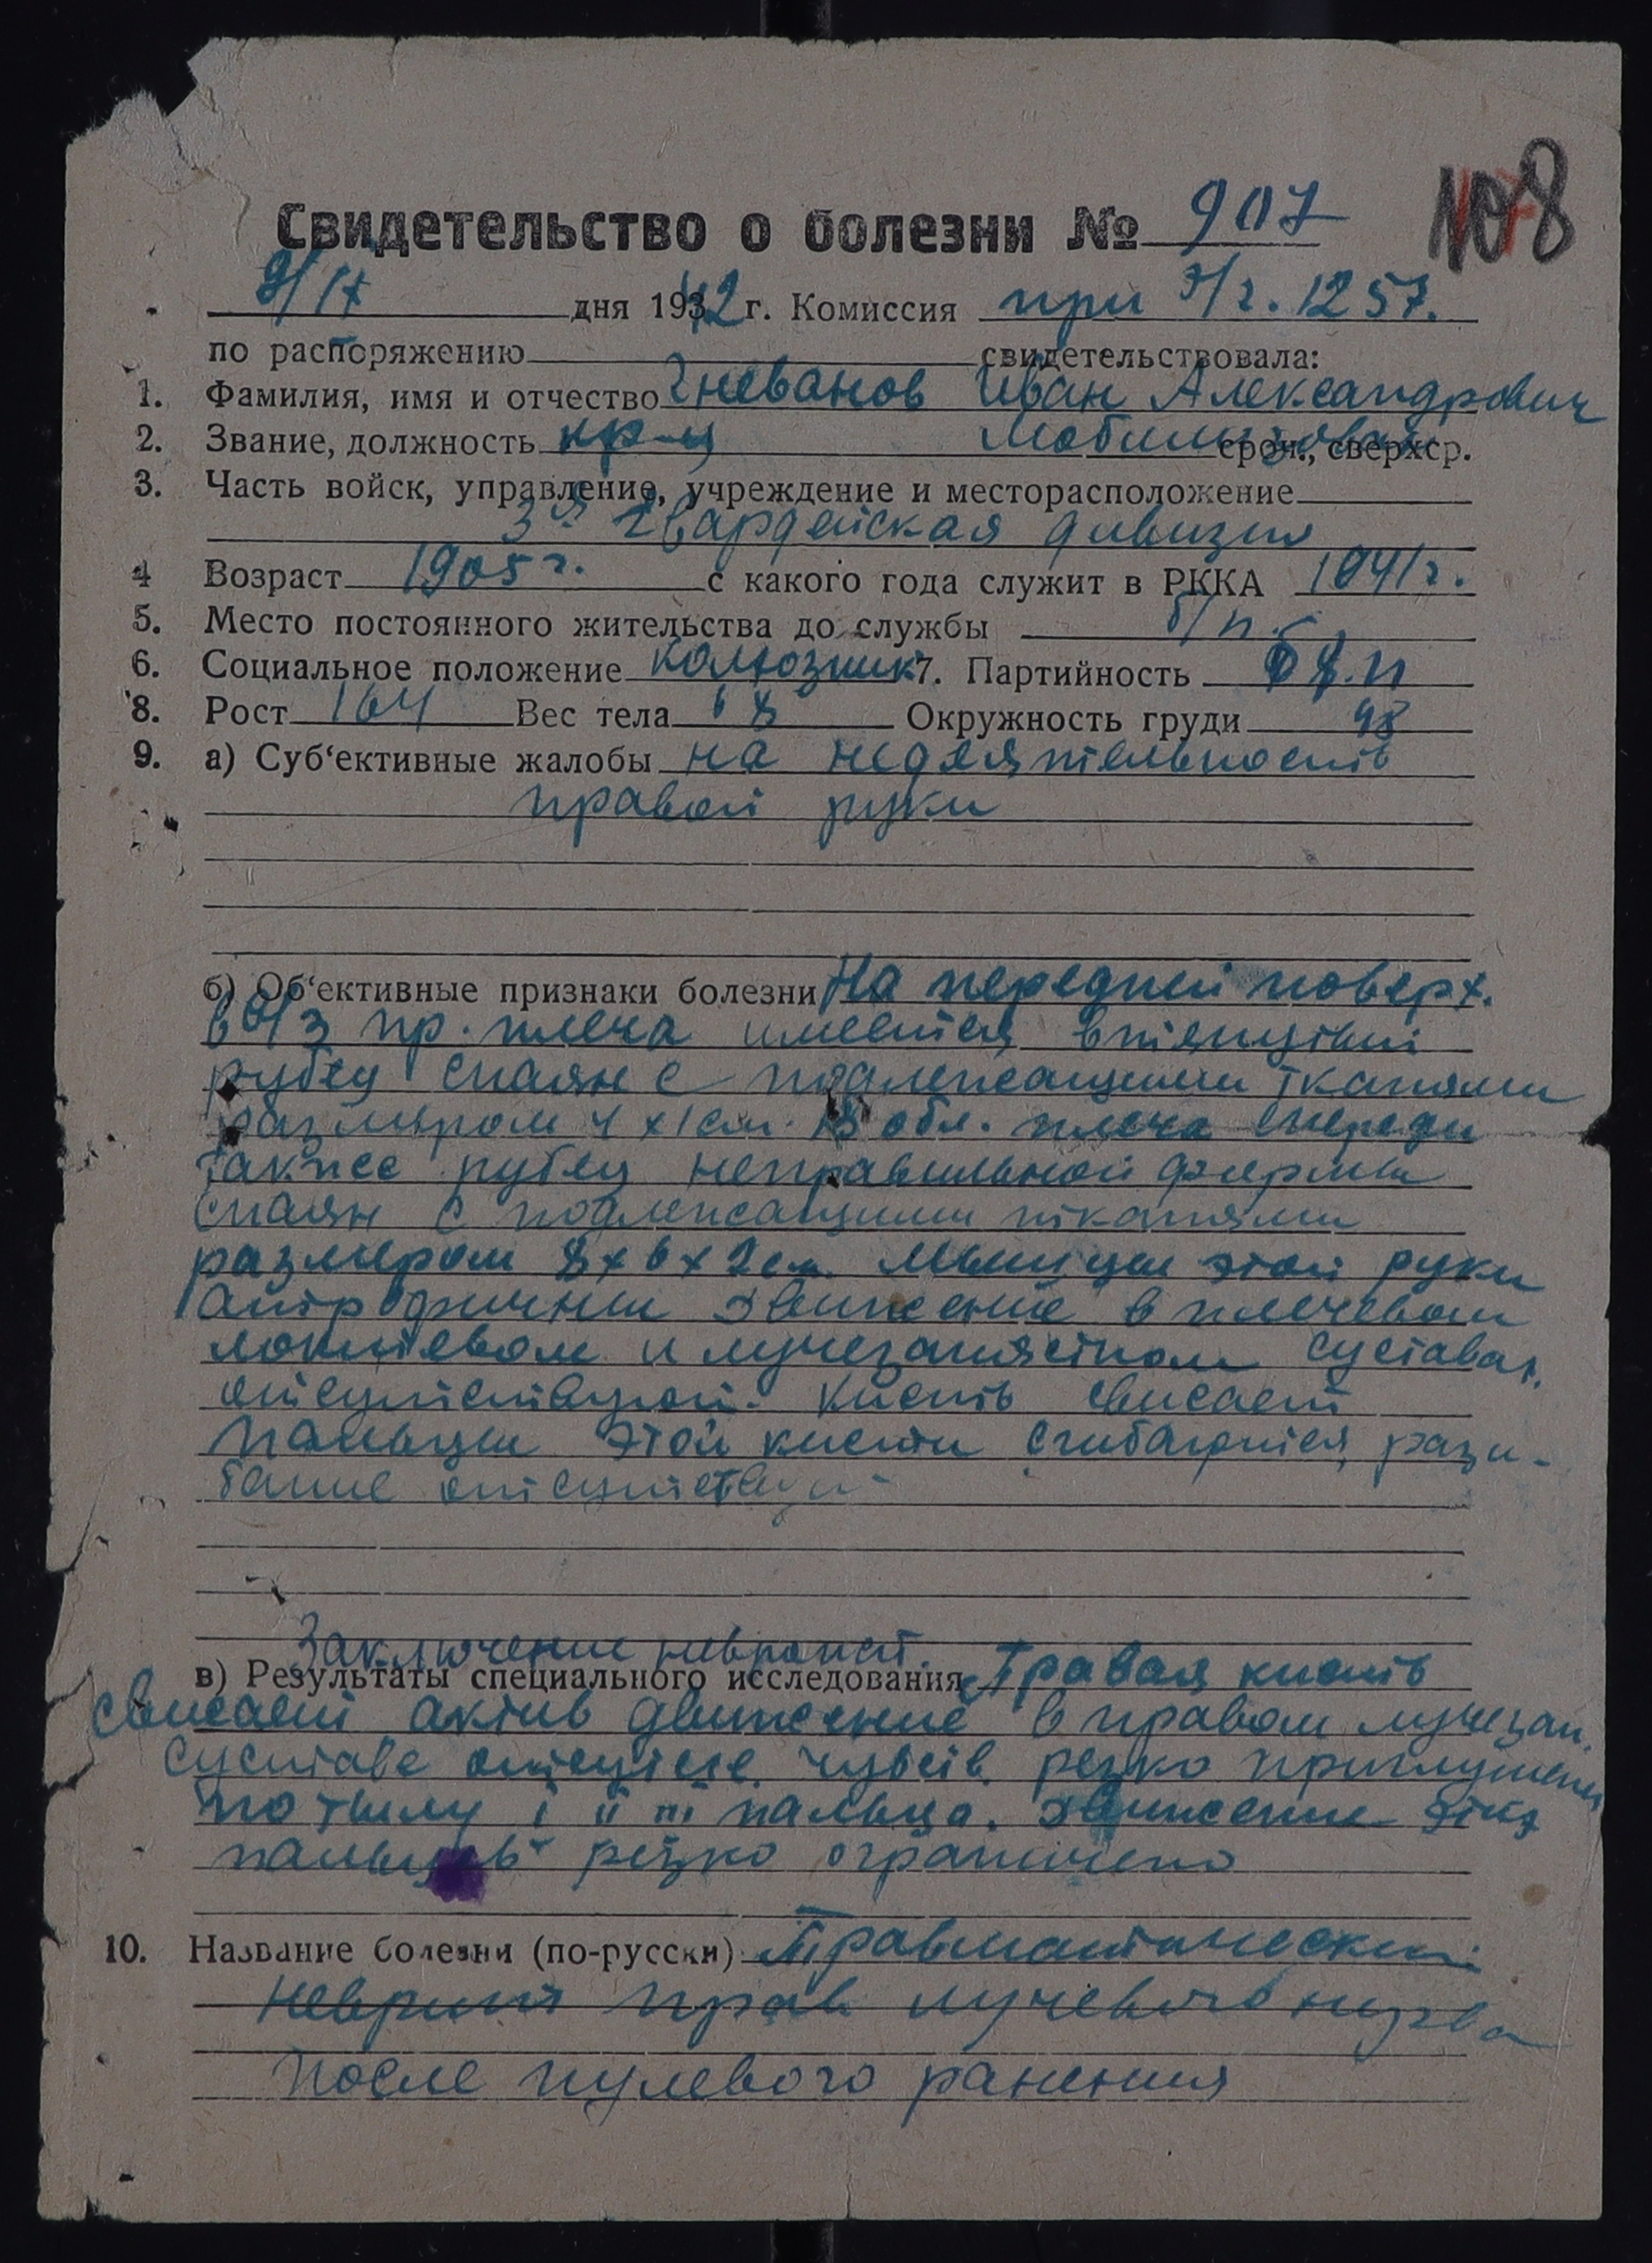 108
Свидетельство о болезни № 907
9/IX дня 1942 г. Комиссия при э/г. 1257.
по распоряжению свидетельствовала:
1. Фамилия, имя и отчество Гневанов Иван Александрович
2. Звание, должность кр-ц Мобилизован сроч., сверхср.
3. Часть войск, управление, учреждение и месторасположение
3я Гвардейская дивизия
4 Возраст 1905 г. с какого года служит в РККА 1941 г.
5. Место постоянного жительства до службы б/п.
6. Социальное положение колхозник 7. Партийность б/п
8. Рост 164 Вес тела 68 Окружность груди 98
9. а) Суб‘ективные жалобы на недеятельность
правой руки
б) Об‘ективные признаки болезни На передней поверх.
в/3 пр. плеча имеется втянутый
рубец спаян с подлежащими тканями
размером 4 х 1 см. В обл. плеча спереди
также рубец неправильной формы
спаян с подлежащими тканями
размером 8 х 6 х 2 см. Мышцы этой руки
атрофичны движение в плечевом
локтевом и лучезапястном суставах
отсутствуют. Кисть свисает
пальцы этой кисти сгибаются, разги-
бание отсутствует
Заключение невропат.
в) Результаты специального исследования Правая кисть
свисает актив движение в правом лучезап.
суставе отсутств. чувств. резко приглушена
по тылу I II III пальца. движение этих
пальцев резко ограничено
10. Название болезни (по-русски) Травматический
неврит прав лучевого нерва
после пулевого ранения